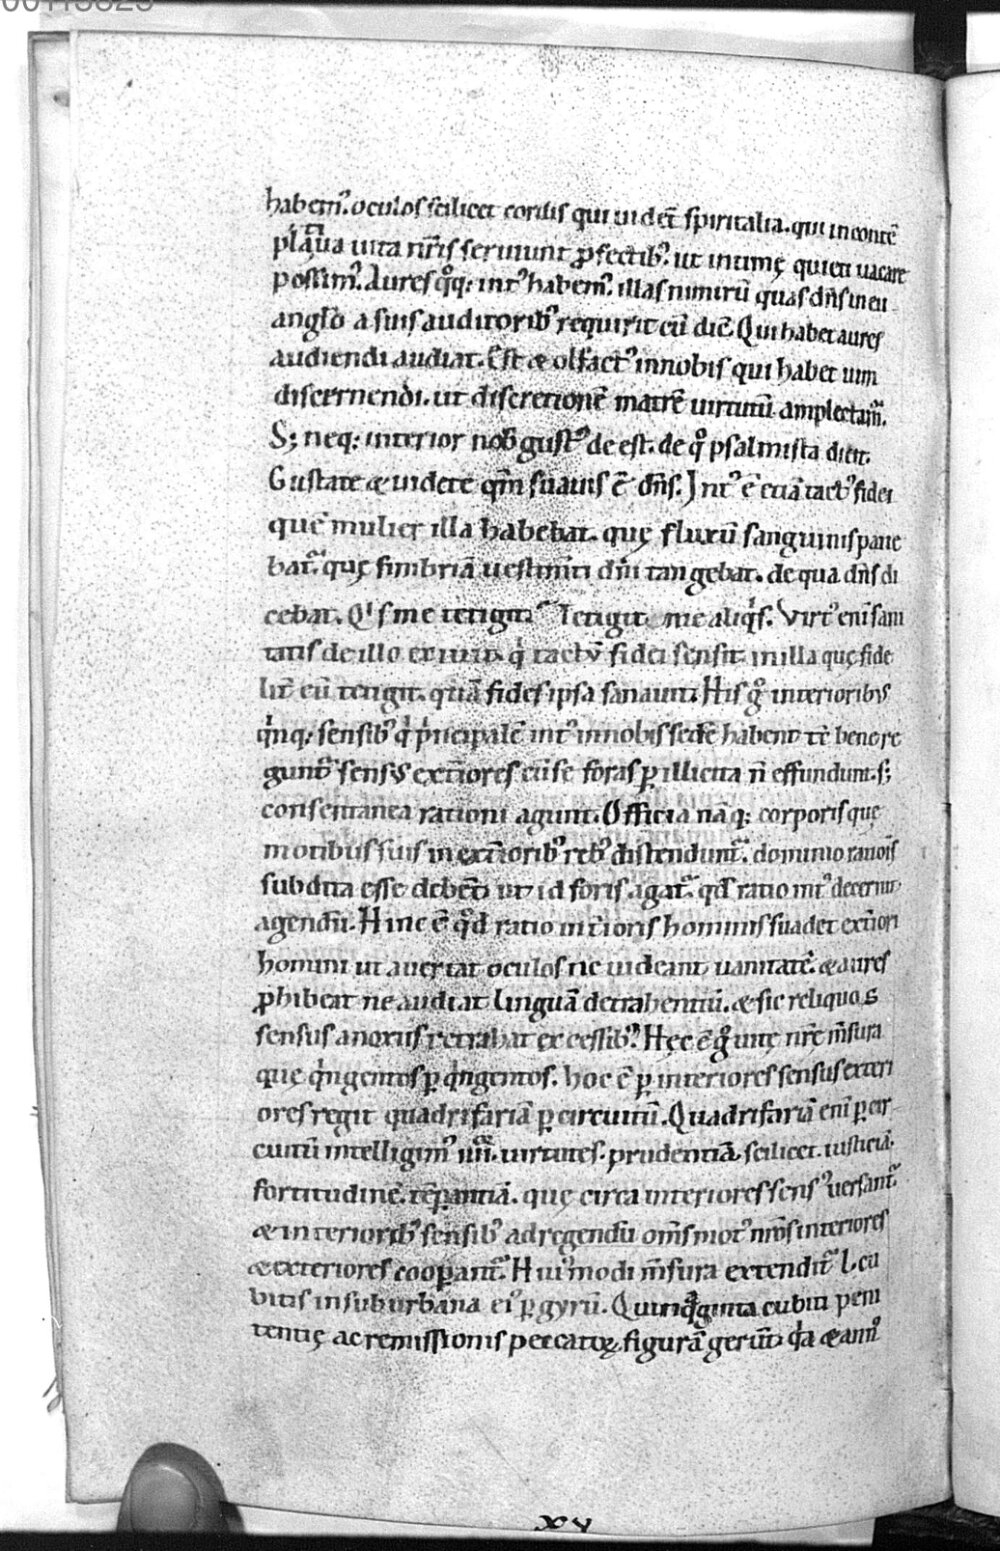 00113823
habem᷒. oculos scilicet cordis qui uidēt spiritalia. qui in contē
platiua uita nr̄is seruiunt ꝓfectib᷒. ut intimę quieti uacare
possim᷒. Aures qͦq; int᷒ habem᷒. illas nimirū quas dn̄s in eu
anglio a suis auditorib᷒ requirit cū dic̄. Qui habet aures
audiendi audiat. Est & olfact᷒ in nobis qui habet uim
discernendi. ut discretionē matrē uirtutū amplectam̃.
S; neq; interior nob̄ gust᷒ de est. de qͦ psalmista dicit.
Gustate & uidete qm̄ suauis ē dn̄s. Int᷒ ē etiā tact᷒ fidei
quē mulier illa habebat. quę fluxū sanguinis patie
bat̃. quę fimbriā uestim̄ti dn̄i tangebat. de qua dn̄s di
cebat. Qͥs me tetigit? Tetigit me aliqͥs. Virt᷒ eni sani
tatis de illo exiuit. qͥ tactū fidei sensit in illa quę fide
lit̄ eū tetigit. quā fides ipsa sanauit. His gͦ interiorib᷒
qͥnq; sensib᷒ qͥ pͥncipalē int᷒ in nobis sedē habent t̄ bene re
gunt̃ sens᷒ ext̄iores cū se foras ꝑ illicita n̄ effundunt. s;
consentanea rationi agunt. Officia nāq; corporis que
motibus suis in ext̄iorib᷒ reb᷒ distendunt̃. dominio rationis
subdita esse debēt ut id foris agat̃. qd̄ ratio int᷒ decernit
agendū. Hinc ē qͦd ratio int̄ioris hominis suadet ext̄iori
homini ut auertat oculos ne uideant uanitatē. & aures
ꝓhibeat ne audiat linguā detrahentiū. & sic reliquos
sensus a noxiis retrahat excessib᷒. Hęc ē gͦ unę nr̄e m̄sura
que qͥngentos ꝑ qͥngentos. hoc ē ꝑ interiores sensus exteri
ores regit quadrifariā ꝑ circuitū. Quadrifariā eni ꝑ cir
cuitū intelligim᷒ iiiiͦʳ. uirtutes. prudentiā scilicet. iusticiā.
fortitudinē. tēꝑantiā. quę circa interiores sens᷒ uersant̃
& interiorib᷒ sensib᷒ ad regendū om̄s mot᷒ nr̄os interiores
& exteriores cooꝑant̃. Hui᷒modi m̄sura extendit̃ l. cu
bitis in suburbana ei᷒ ꝑ gyrū. Quinqͣginta cubiti peni
tentię ac remissionis peccatoꝝ figurā gerūt. qͥa & ann᷒
xv